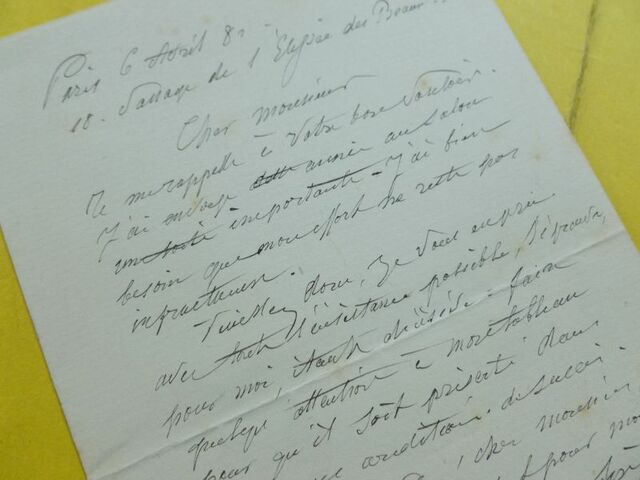 Paris 6 Avril 8
18. Passage de l'Elysée des Beaux
Cher Monsieur
Je me rappelle à votre bon vouloir.
J'ai envoyé cette année au Salon
une toile importante - J'ai bien
besoin que mon effort ne reste pas
infructueux.
Veuillez donc, je vous en prie
avec toute l'insistance possible,
pour moi, faire
quelque attention à mon tableau
pour qu'il soit présenté dans
conditions de succès.
cher monsieur
pour mo